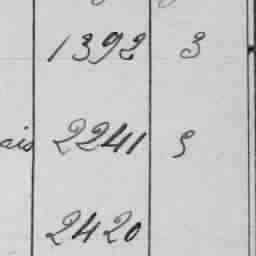 1392 3
ais 2241 9
2420